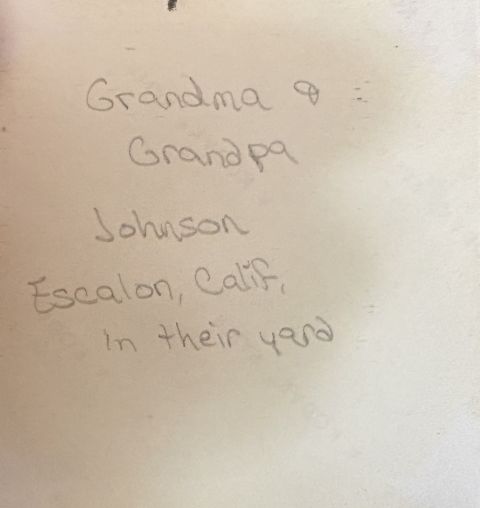 Grandma &
Grandpa
Johnson
Escalon, Calif,
in their yard